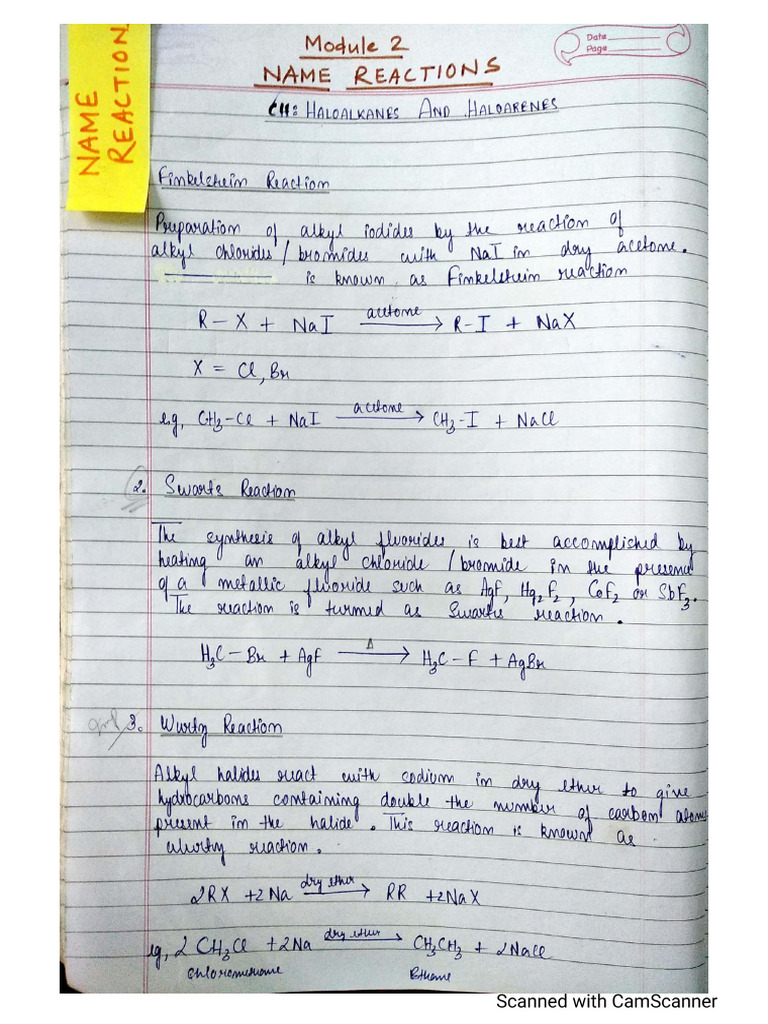 Module 2
Date
Page
NAME REACTIONS
NAME
REACTION
CH: HALOALKANES AND HALOARENES
Finkelstein Reaction
Preparation of alkyl iodides by the reaction of
alkyl chlorides / bromides with NaI in dry acetone.
is known as Finkelstein reaction
R-X + NaI acetone→ R-I + NaX
X = Cl, Br
e.g, CH₃-Cl + NaI acetone→ CH₃-I + NaCl
2. Swarts Reaction
The synthesis of alkyl fluorides is best accomplished by
heating an alkyl chloride / bromide in the presence
of a metallic fluoride such as AgF, Hg₂F₂, CoF₂ or SbF₃.
The reaction is turmed as Swarts reaction.
H₃C-Br + AgF Δ→ H₃C-F + AgBr
3. Wurtz Reaction
Alkyl halides react with sodium in dry ether to give
hydrocarbons containing double the number of carbon atoms
present in the halide. This reaction is known as
Wurtz reaction.
2RX + 2Na dry ether→ RR + 2NaX
eg, 2 CH₃Cl + 2Na dry ether→ CH₃CH₃ + 2NaCl
Ethane
Scanned with CamScanner